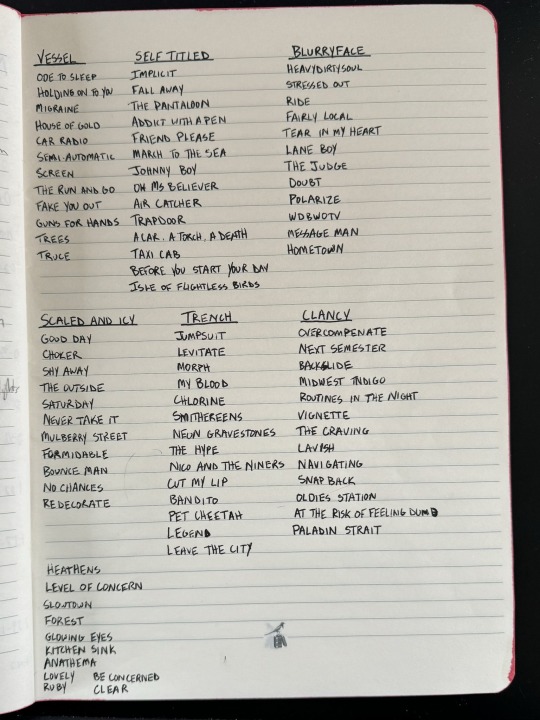 VESSEL
ODE TO SLEEP
HOLDING ON TO YOU
MIGRAINE
HOUSE OF GOLD
CAR RADIO
SEMI-AUTOMATIC
SCREEN
THE RUN AND GO
FAKE YOU OUT
GUNS FOR HANDS
TREES
TRUCE
SELF TITLED
IMPLICIT
FALL AWAY
THE PANTALOON
ADDICT WITH A PEN
FRIEND PLEASE
MARCH TO THE SEA
JOHNNY BOY
OH MS BELIEVER
AIR CATCHER
TRAPDOOR
A CAR, A TORCH, A DEATH
TAXI CAB
BEFORE YOU START YOUR DAY
ISLE OF FLIGHTLESS BIRDS
BLURRYFACE
HEAVYDIRTYSOUL
STRESSED OUT
RIDE
FAIRLY LOCAL
TEAR IN MY HEART
LANE BOY
THE JUDGE
DOUBT
POLARIZE
WDBWOTV
MESSAGE MAN
HOMETOWN
SCALED AND ICY
GOOD DAY
CHOKER
SHY AWAY
THE OUTSIDE
SATURDAY
NEVER TAKE IT
MULBERRY STREET
FORMIDABLE
BOUNCE MAN
NO CHANCES
REDECORATE
TRENCH
JUMPSUIT
LEVITATE
MORPH
MY BLOOD
CHLORINE
SMITHEREENS
NEON GRAVESTONES
THE HYPE
NICO AND THE NINERS
CUT MY LIP
BANDITO
PET CHEETAH
LEGEND
LEAVE THE CITY
CLANCY
OVERCOMPENATE
NEXT SEMESTER
BACKSLIDE
MIDWEST INDIGO
ROUTINES IN THE NIGHT
VIGNETTE
THE CRAVING
LAVISH
NAVIGATING
SNAP BACK
OLDIES STATION
AT THE RISK OF FEELING DUMB
PALADIN STRAIT
HEATHENS
LEVEL OF CONCERN
SLOWTOWN
FOREST
GLOWING EYES
KITCHEN SINK
ANATHEMA
LOVELY BE CONCERNED
RUBY CLEAR